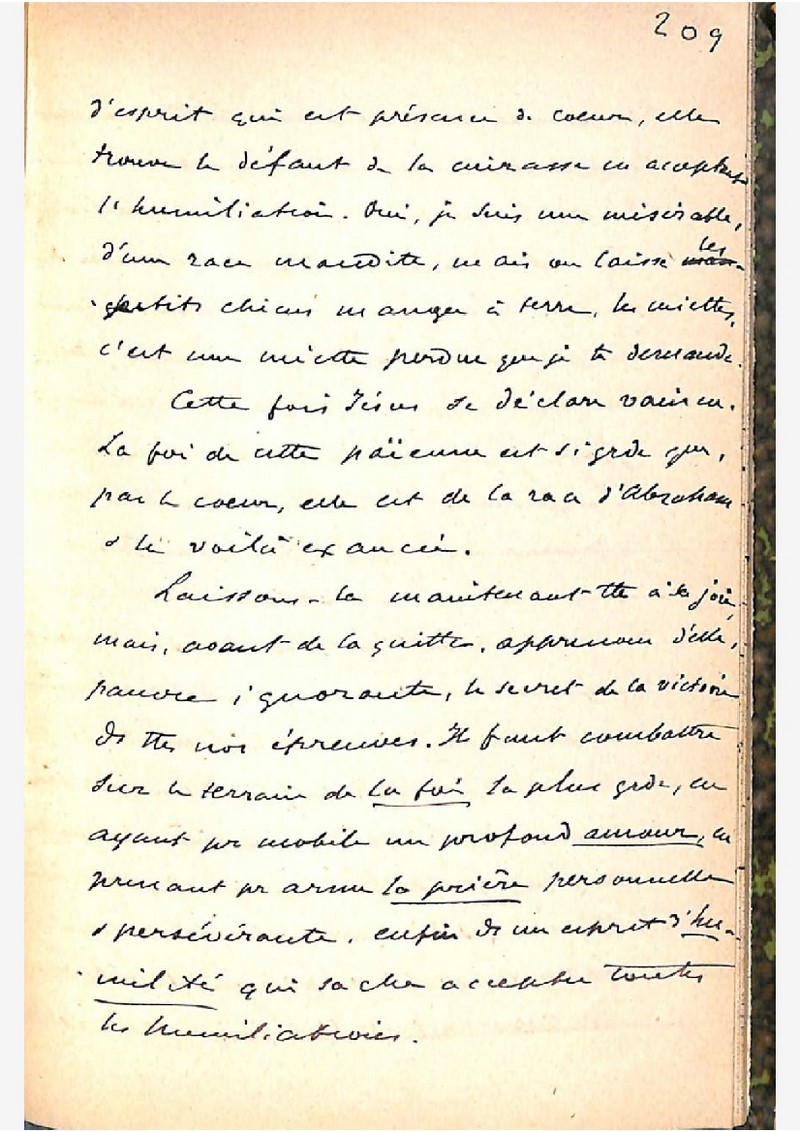 209
d'esprit qui est présence de coeur, elle
trouve le défaut de la cuirasse en acceptant
l'humiliation. Oui, je suis une misérable,
d'une race maudite, mais on laisse les
petits chiens manger à terre, les miettes,
c'est une miette perdue que je te demande.
Cette fois Jésus se déclare vaincu.
La foi de cette païenne est si grde que,
par le coeur, elle est de la race d'Abraham
& la voilà exaucée.
Laissons-la maintenant tte à sa joie,
mais, avant de la quitter, apprenons d'elle,
pauvre ignorante, le secret de la victoire
ds ttes nos épreuves. Il faut combattre
sur le terrain de la foi la plus grde, en
ayant pr mobile un profond amour, en
prenant pr arme la prière personnelle
& persévérante, enfin ds un esprit d'hu-
milité qui sache accepter toutes
les humiliations.